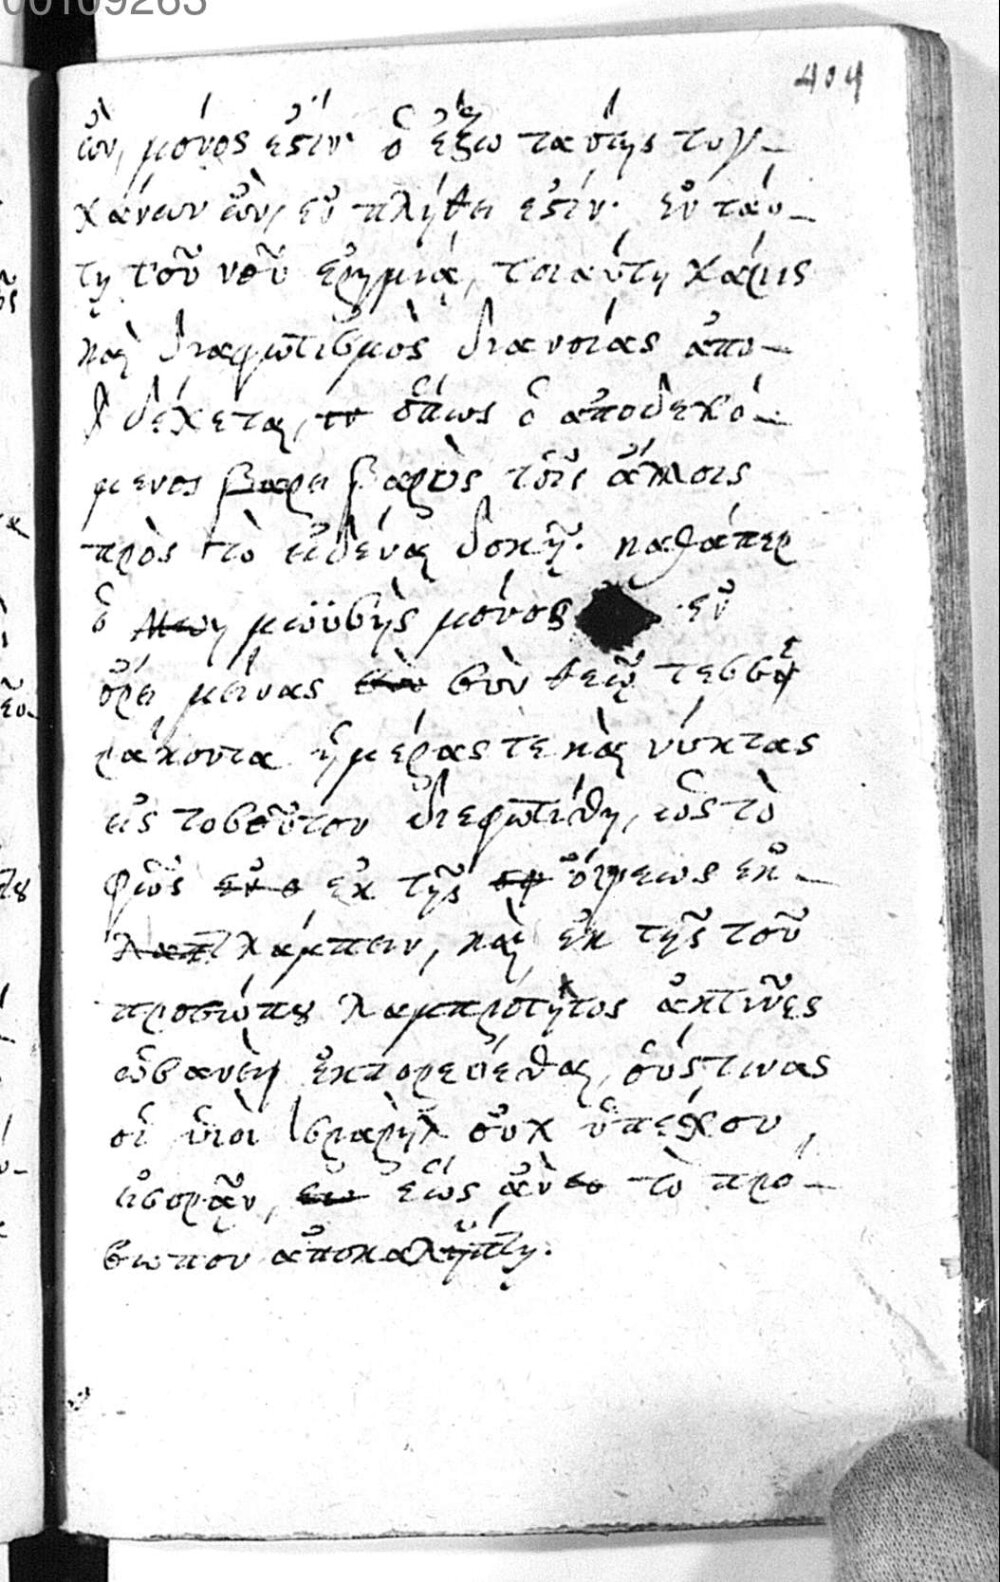 00109263
404
ὢν, μόνος ἐστίν· ὁ ἔξω ταύτης τυγ-
χάνων ὢν, ἐν πλήθει ἐστίν· ἐν ταύ-
τῃ τοῦ νοῦ ἐρημίᾳ, τοιαύτη χάρις
καὶ διαφωτισμὸς διανοίας ἀπο-
δέχεται, ὅπως ὁ ἀποδεχό-
μενος βαρὺς τοῖς ἄλλοις
πρὸς τὸ εἰδέναι δοκῇ. καθάπερ
ὁ μωϋσῆς μόνος ἐν
ὄρει μείνας σὺν θεῷ τεσσε
ράκοντα ἡμέρας τε καὶ νύκτας
εἰς τοσοῦτον διεφωτίσθη, ὡς τὸ
φῶς ἐκ τῆς ὄψεως ἐκ-
λάμπειν, καὶ ἐκ τῆς τοῦ
προσώπου λαμπρότητος ἀκτῖνες
ὡσανεὶ ἐκπορεύεσθαι, οὕστινας
οἱ υἱοὶ Ἰσραὴλ οὐχ ὑπέχον,
εἰσορᾶν, ἕως ἂν τὸ πρό-
σωπον ἀποκαλύπτῃ.